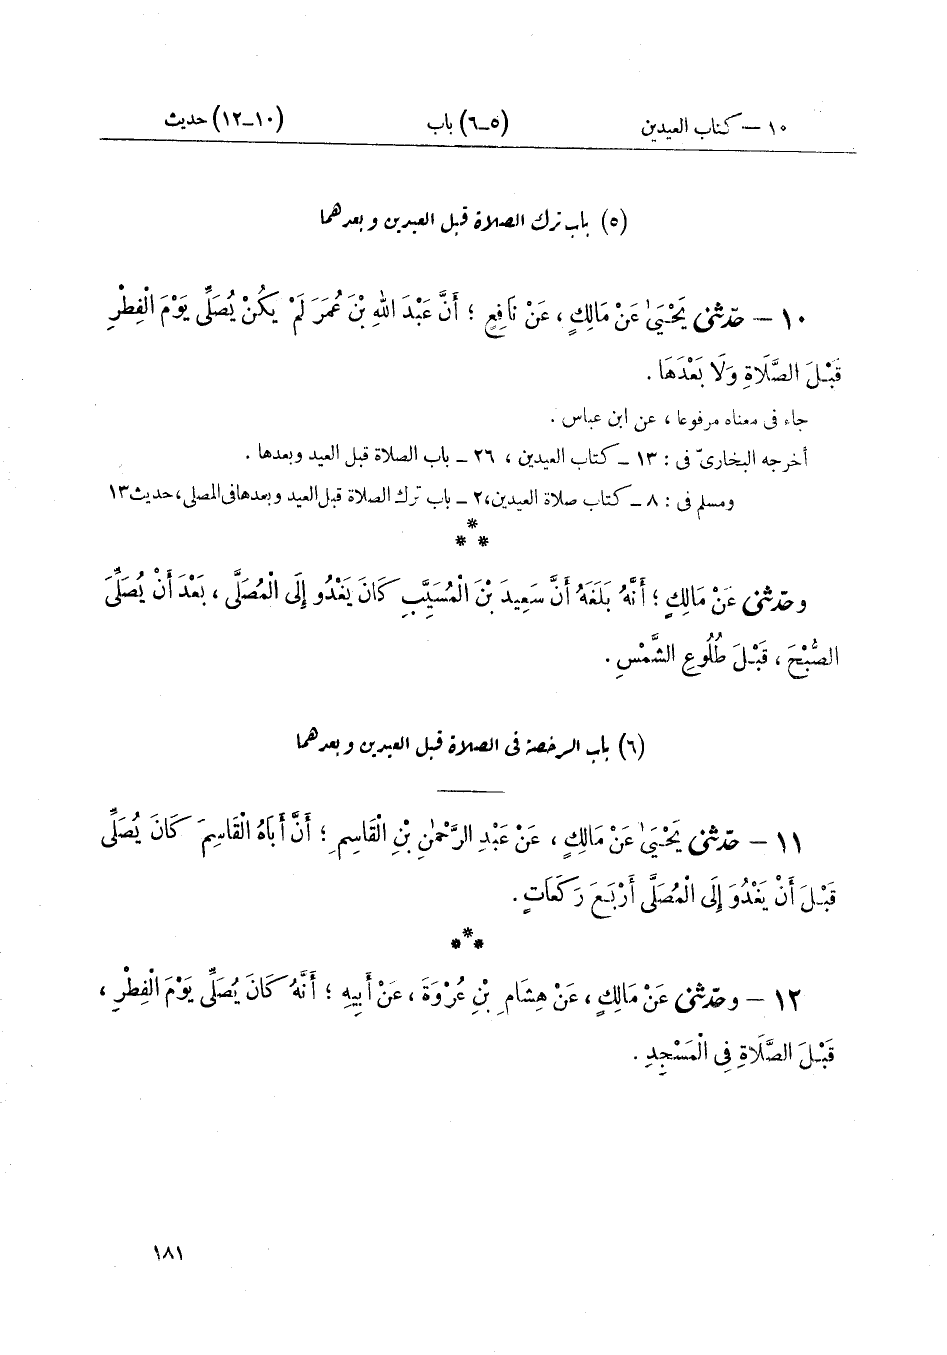 ١٠ – كتاب العيدين (٥–٦) باب (١٠–١٢) حديث
(٥) باب ترك الصلاة قبل العيدين وبعدهما
١٠ – حدّثنى يَحْيَىٰ عَنْ مَالِكٍ، عَنْ نَافِعٍ؛ أَنَّ عَبْدَ اللهِ بْنَ عُمَرَ لَمْ يَكُنْ يُصَلِّى يَوْمَ الْفِطْرِ
قَبْلَ الصَّلَاةِ وَلَا بَعْدَهَا.
جاء فى معناه مرفوعا، عن ابن عباس.
أخرجه البخارىّ فى: ١٣ – كتاب العيدين، ٢٦ – باب الصلاة قبل العيد وبعدها.
ومسلم فى: ٨ – كتاب صلاة العيدين، ٢ – باب ترك الصلاة قبل العيد وبعدها فى المصلى، حديث ١٣
*
* *
وحدّثنى عَنْ مَالِكٍ؛ أَنَّهُ بَلَغَهُ أَنَّ سَعِيدَ بْنَ الْمُسَيَّبِ كَانَ يَغْدُو إِلَى الْمُصَلَّى، بَعْدَ أَنْ يُصَلِّىَ
الصُّبْحَ، قَبْلَ طُلُوعِ الشَّمْسِ.
(٦) باب الرخصة فى الصلاة قبل العيدين وبعدهما
١١ – حدّثنى يَحْيَىٰ عَنْ مَالِكٍ، عَنْ عَبْدِ الرَّحْمٰنِ بْنِ الْقَاسِمِ؛ أَنَّ أَبَاهُ الْقَاسِمَ كَانَ يُصَلِّى
قَبْلَ أَنْ يَغْدُوَ إِلَى الْمُصَلَّى أَرْبَعَ رَكَعَاتٍ.
*
* *
١٢ – وحدّثنى عَنْ مَالِكٍ، عَنْ هِشَامِ بْنِ عُرْوَةَ، عَنْ أَبِيهِ؛ أَنَّهُ كَانَ يُصَلِّى يَوْمَ الْفِطْرِ،
قَبْلَ الصَّلَاةِ فِى الْمَسْجِدِ.
١٨١